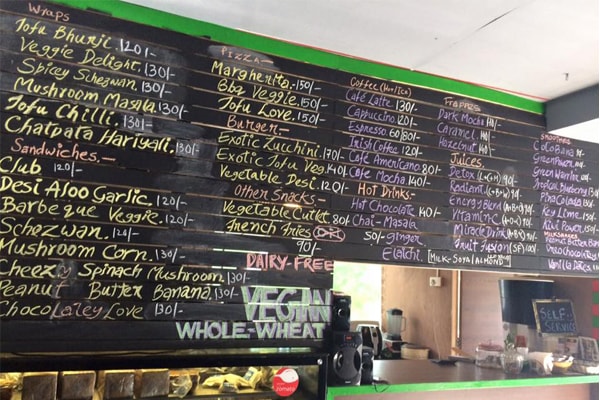 Wraps
Tofu Bhurji. 120/-
Veggie Delight. 130/-
Spicey Schezwan. 130/-
Mushroom Masala. 130/-
Tofu Chilli. 130/-
Chatpata Hariyali. 130/-
Sandwiches.
Club. 120/-
Desi Aloo Garlic. 120/-
Barbeque Veggie. 120/-
Schezwan. 120/-
Mushroom Corn. 130/-
Cheezy Spinach Mushroom. 130/-
Peanut Butter Banana. 130/-
Chocolatey Love. 130/-
Pizza
Margherita. 150/-
Bbq Veggie. 150/-
Tofu Love. 150/-
Burger.
Exotic Zucchini. 170/-
Exotic Tofu Veg. 140/-
Vegetable Desi. 120/-
Other Snacks
Vegetable Cutlet. 80/-
French Fries
90/-
DAIRY-FREE
VEGAN
WHOLE-WHEAT
Coffee (Hot/Ice)
Café Latte. 130/-
Cappuccino. 120/-
Espresso. 60/80/-
Irish Coffee. 120/-
Café Americano. 80/-
Café Mocha. 140/-
Hot Drinks-
Hot Chocolate. 140/-
Chai-Masala
50/- ginger.
Elaichi.
Frappes
Dark Mocha
Caramel
Hazelnut
Juices
Detox
Radient
Energy Blend
Vitamin C
Miracle Drink
Fruit Fusion (SF) 100/-
MILK-SOYA/ALMOND
Smoothies
CoCoBana
Green Power
Green Warrior
Tropical Blueberry
Pina Colada
Key Lime
Kiwi Power
Milkshakes
Peanut Butter Bana
Oreo Chocolatey
Vanilla Dates
SELF
SERVICE
zomato